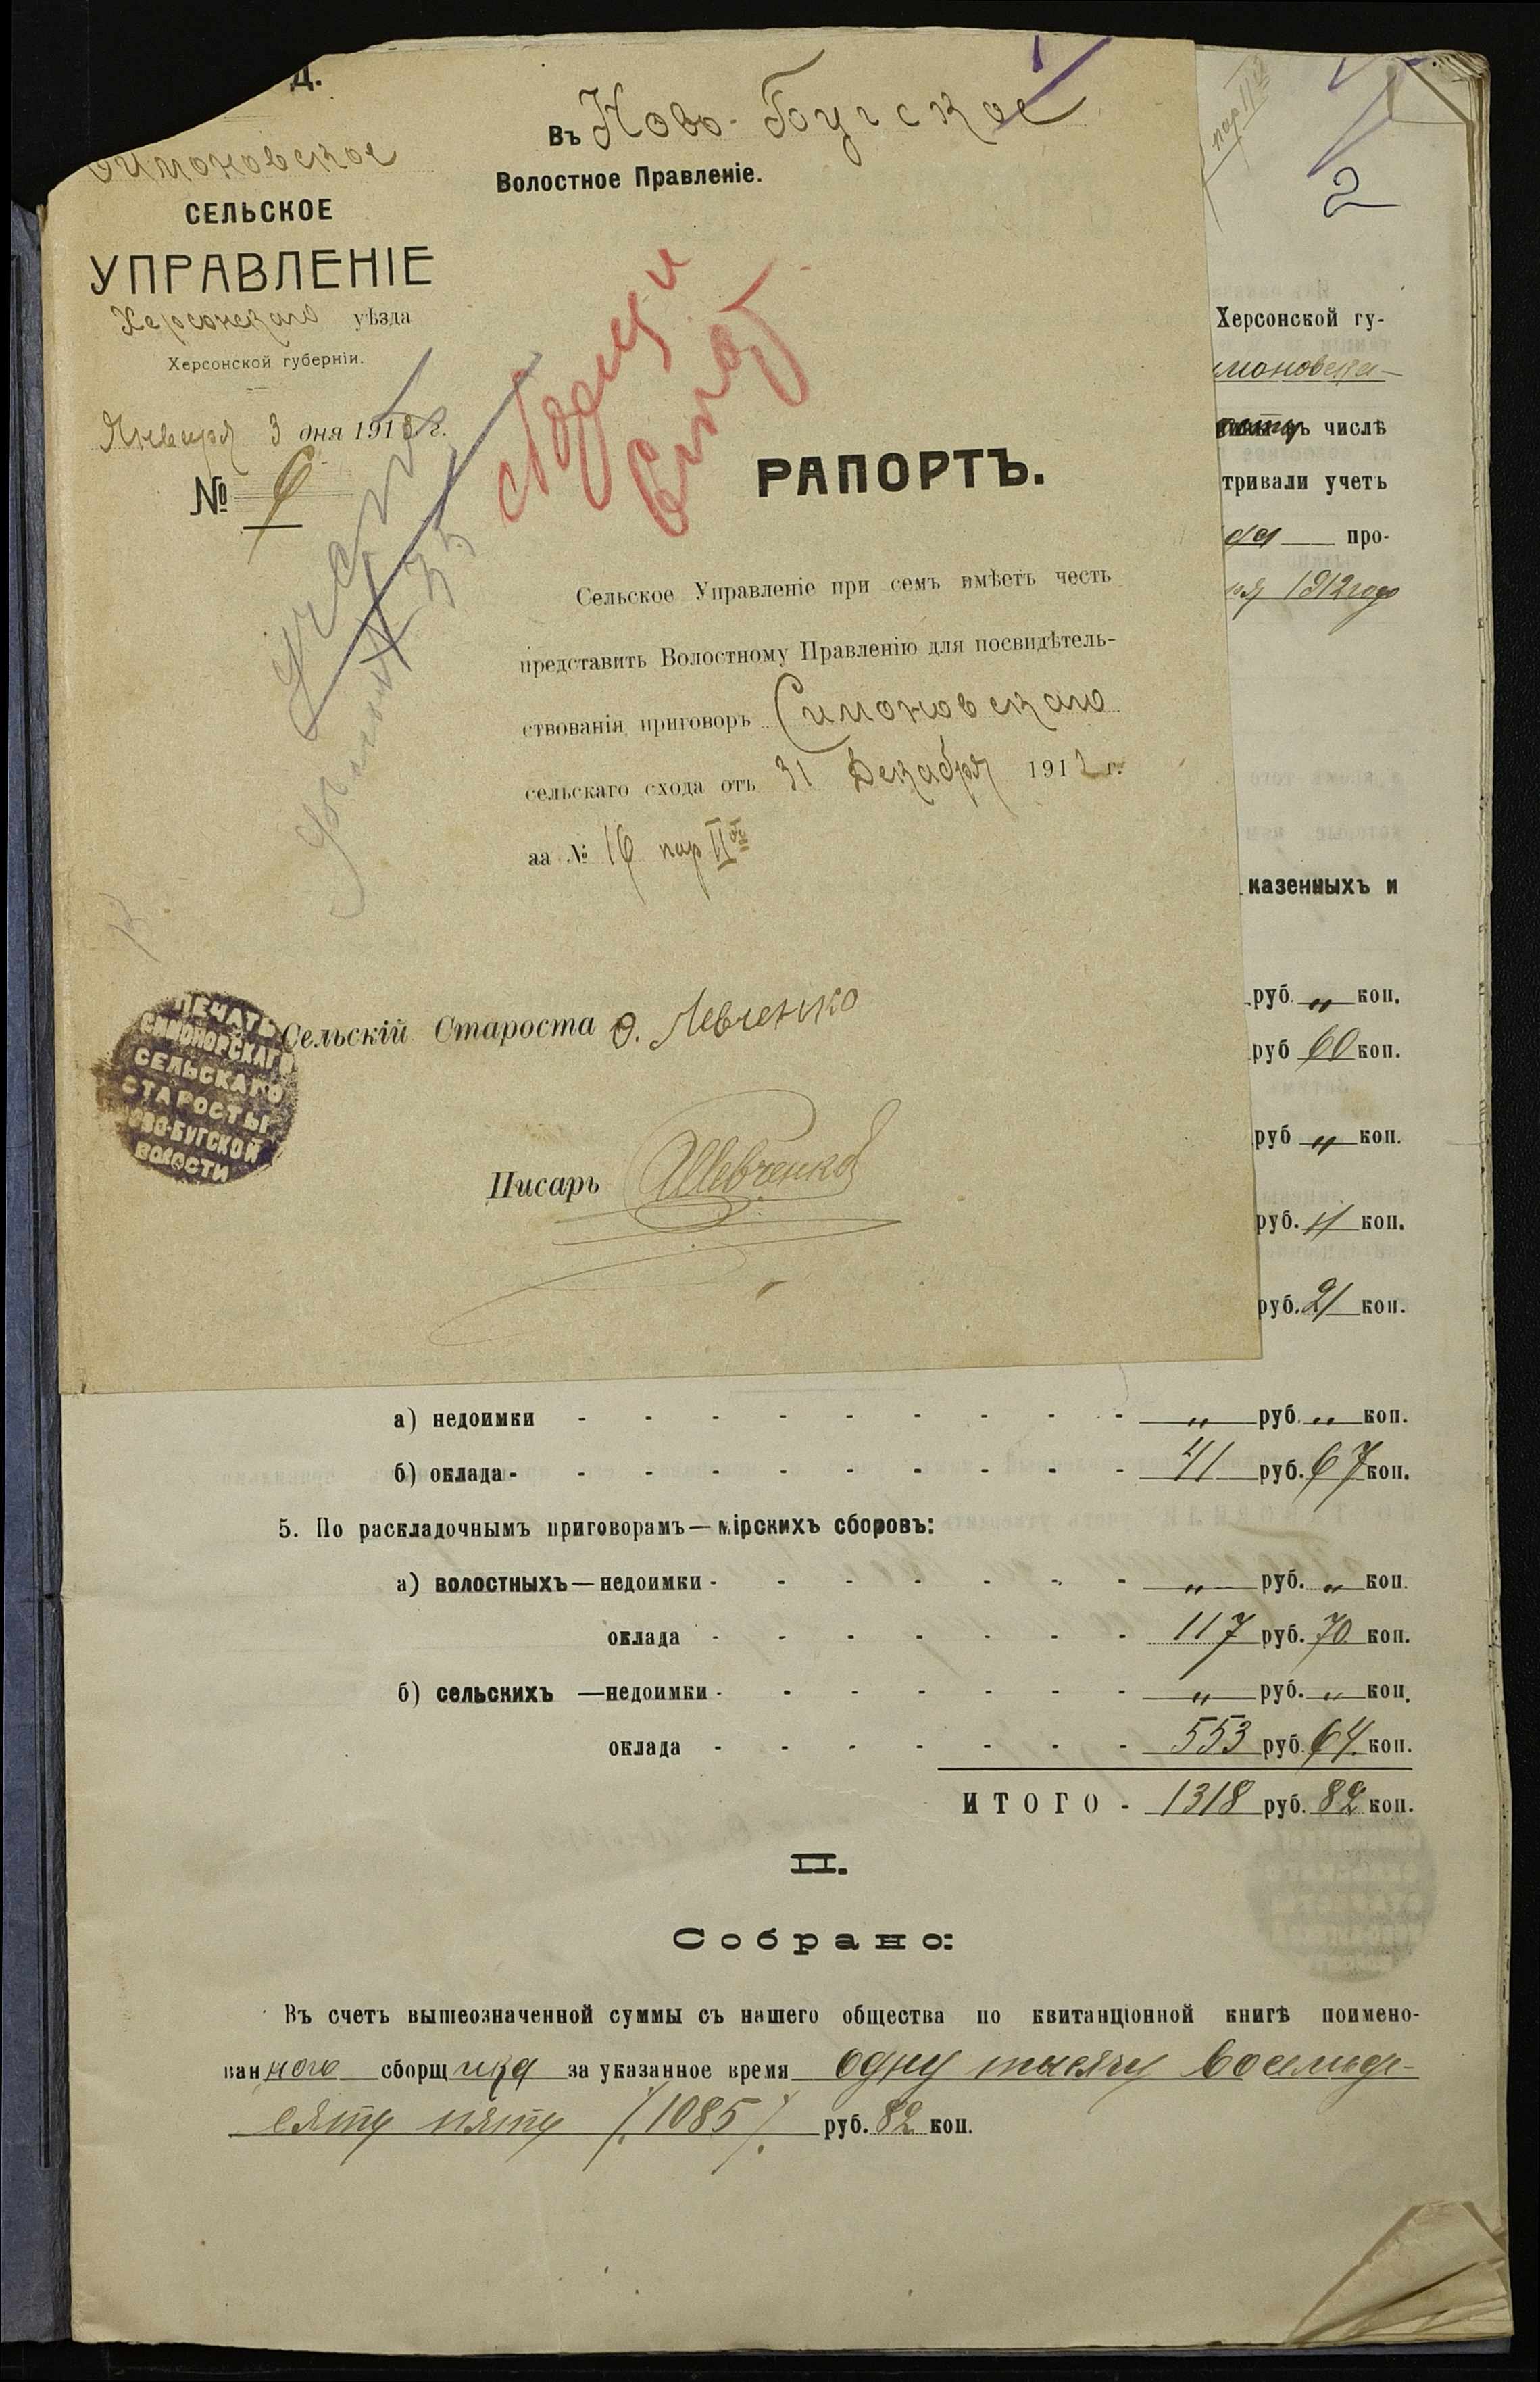 Д.
Симоновское
СЕЛЬСКОЕ
УПРАВЛЕНІЕ
Херсонскаго уѣзда
Херсонской губерніи.
Января 3 дня 1913 г.
№ 6
Въ Ново-Бугское
Волостное Правленіе.
РАПОРТЪ.
Сельское Управленіе при семъ имѣетъ честь
представить Волостному Правленію для посвидѣтель-
ствованія приговоръ Симоновскаго
сельскаго схода отъ 31 Декабря 1912 г.
за № 16 пар II
Сельскій Староста Ѳ. Левченко
ПЕЧАТЬ
СИМОНОВСКАГО
СЕЛЬСКАГО
СТАРОСТЫ
НОВО-БУГСКОЙ
ВОЛОСТИ
Писарь Шевченко
пар II
2
Херсонской гу-
моновска
въ числѣ
тривали учетъ
про-
1912 года
казенныхъ и
руб. „ коп.
руб 60 коп.
руб „ коп.
руб. „ коп.
руб. 21 коп.
а) недоимки - - - - - - - - - „ руб. „ коп.
б) оклада - - - - - - - - - - 41 руб. 67 коп.
5. По раскладочнымъ приговорамъ — мірскихъ сборовъ:
а) волостныхъ — недоимки - - - - - - - „ руб. „ коп.
оклада - - - - - - - 117 руб. 70 коп.
б) сельскихъ — недоимки - - - - - - - „ руб. „ коп.
оклада - - - - - - - 553 руб. 64 коп.
ИТОГО - 1318 руб. 82 коп.
II.
Собрано:
Въ счетъ вышеозначенной суммы съ нашего общества по квитанціонной книгѣ поимено-
ваннаго сборщика за указанное время одну тысячу восемьде-
сятъ пять /1085/ руб. 82 коп.